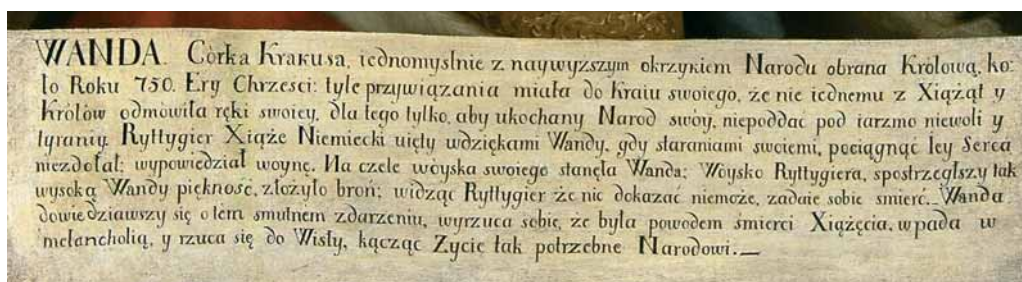 WANDA. Córka Krakusa, iednomyslnie z naywyzszym okrzykiem Narodu obrana Królową, ko:
ło Roku 750. Ery Chrzesci: tyle przywiązania miała do kraiu swoiego, że nie iednemu z Xiążąt y
Królów odmówiła ręki swoiey, dla tego tylko, aby ukochany Narod swóy, niepoddac pod iarzmo niewoli y
tyranij. Ryttygier Xiąże Niemiecki uięty wdziękami Wandy, gdy staraniami swoiemi, pociągnąć Iey Serca
niezdołał; wypowiedział woynę. Na czele woyska swoiego stanęła Wanda; Woysko Ryttygiera, spostrzegłszy tak
wysoką Wandy pięknośc, złożyło broń; widząc Ryttygier że nic dokazać niemoże, zadaie sobie smierć._ Wanda
dowiedziawszy się o tem smutnem zdarzeniu, wyrzuca sobie, że była powodem śmierci Xiążęcia, wpada w
melancholią, y rzuca się do Wisły, kącząc Zycie tak potrzebne Narodowi._